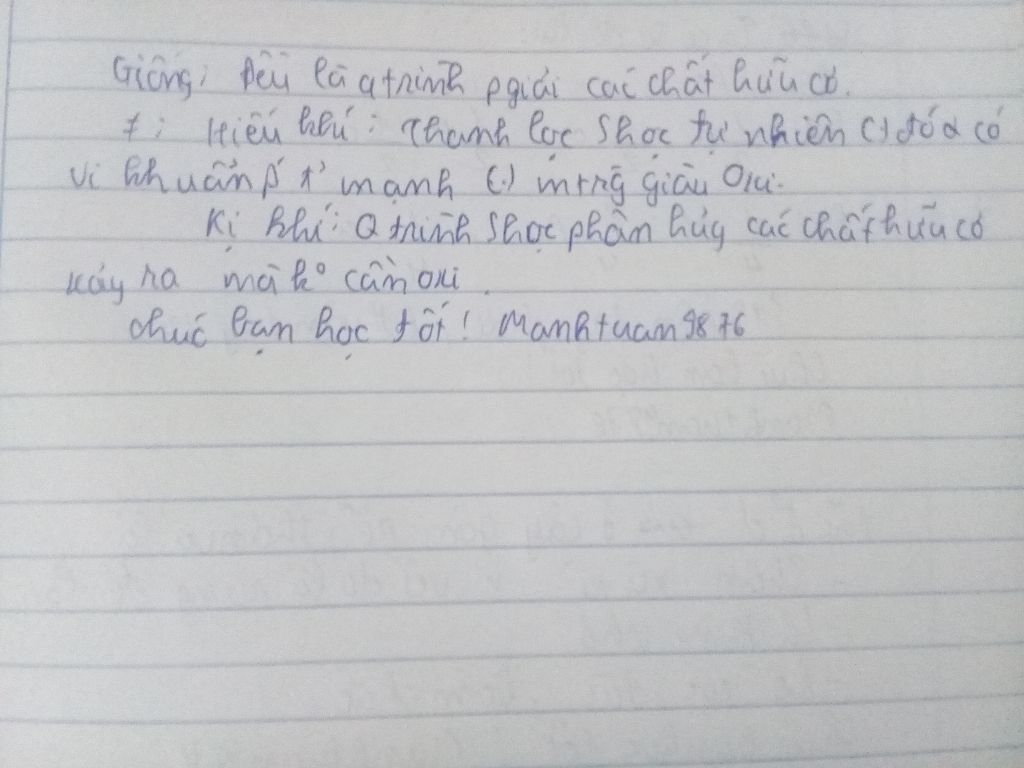 Giống: Đều là qtrình pgiải các chất hữu cơ.
≠ : Hiếu khí : Thanh lọc shọc tự nhiên (.) đó α có
vi khuẩn p' t' mạnh (.) mtrng̃ giàu Oxi.
Kị khí : Q trình shọc phân hủy các chất hữu cơ
xảy ra mà k° cần oxi.
chúc bạn học tốt ! Manhtuan9876